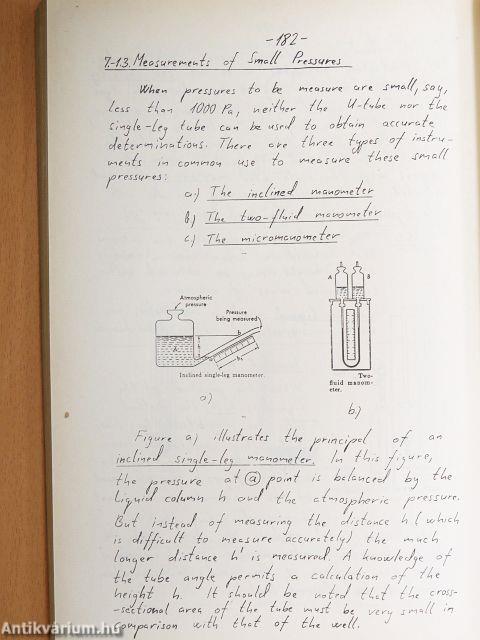 -182-
7.-1.3. Measurements of Small Pressures
When pressures to be measure are small, say,
less than 1000 Pa, neither the U-tube nor the
single-leg tube can be used to obtain accurate
determinations. There are three types of instru-
ments in common use to measure these small
pressures:
a.) The inclined manometer
b.) The two-fluid manometer
c.) The micromanometer
Atmospheric
pressure
Pressure
being measured
b
Inclined single-leg manometer.
a)
A B
Two-
fluid manom-
eter.
b)
Figure a) illustrates the principal of an
inclined single-leg manometer. In this figure,
the pressure at ⓐ point is balanced by the
liquid column h and the atmospheric pressure.
But instead of measuring the distance h (which
is difficult to measure accurately) the much
longer distance h' is measured. A knowledge of
the tube angle permits a calculation of the
height h. It should be noted that the cross-
-sectional area of the tube must be very small in
comparison with that of the well.
Antikvárium.hu